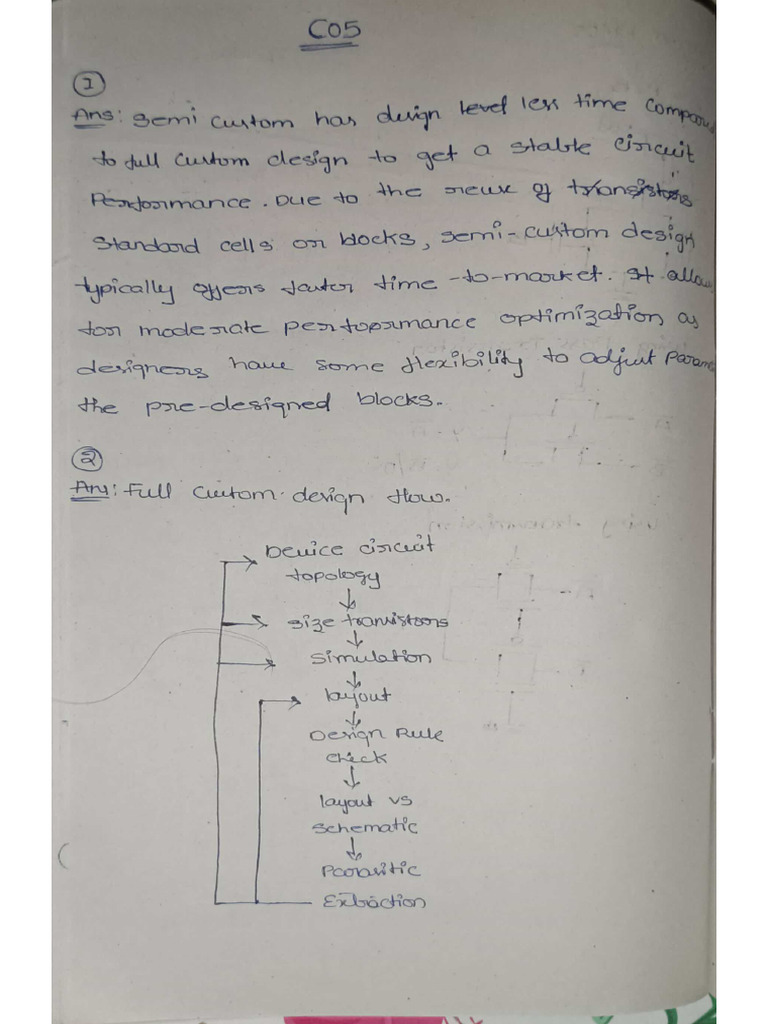 CO5
1
Ans: Semi custom has design level less time
to full custom design to get a stable circuit
Performance. Due to the reuse of transistors
Standard cells or blocks, semi-custom design
typically offers faster time-to-market. It allow
for moderate performance optimization as
designers have some flexibility to adjust
the pre-designed blocks.
2
Ans: Full custom design flow.
Device circuit
topology
size transistors
simulation
layout
Design Rule
check
layout vs
schematic
Parasitic
Extraction